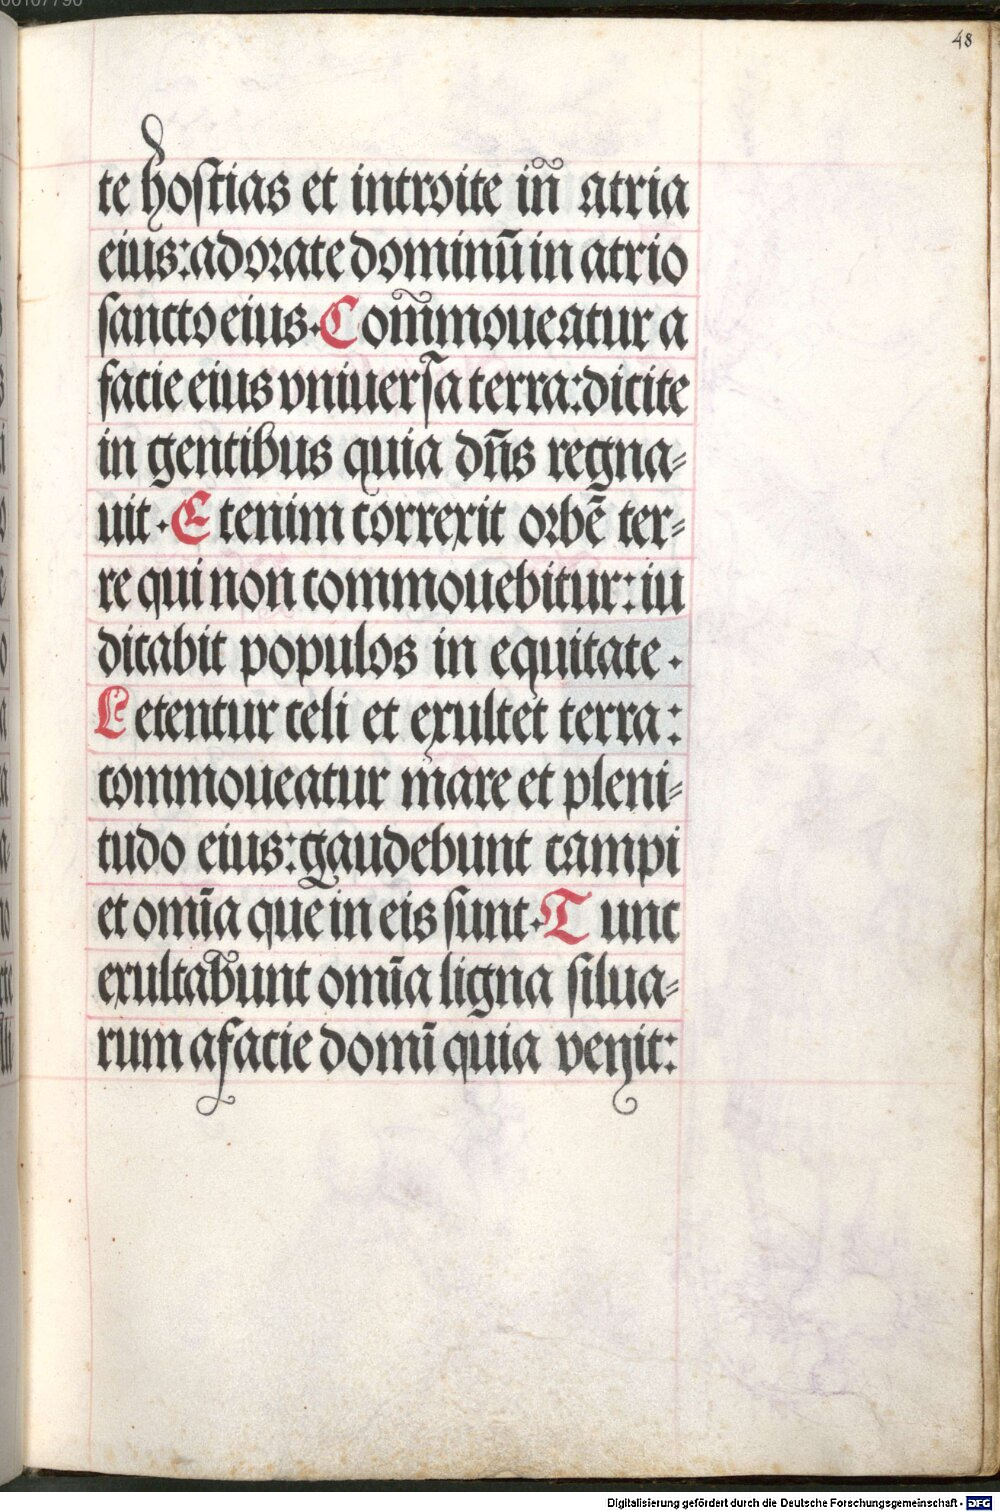 48
te hostias et introite in̄ atria
eius: adorate dominū in atrio
sancto eius. Com̄moueatur a
facie eius vniuersa terra: dicite
in gentibus quia dn̄s regna-
uit. Etenim correxit orbē ter-
re qui non commouebitur: iu
dicabit populos in equitate.
Letentur celi et exultet terra:
commoueatur mare et pleni-
tudo eius: gaudebunt campi
et omīa que in eis sunt. Tunc
exultabunt omīa ligna silua-
rum a facie domī quia venit:
Digitalisierung gefördert durch die Deutsche Forschungsgemeinschaft - DFG